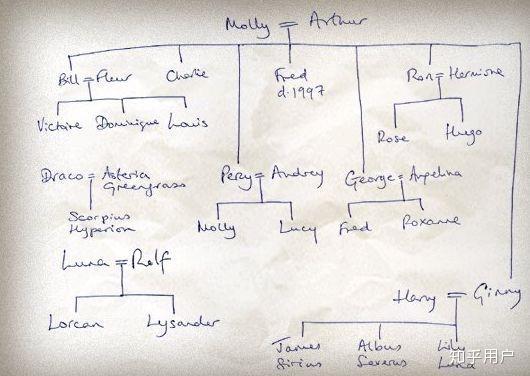 Molly = Arthur
Bill = Fleur Charlie Fred Ron = Hermione
d. 1997
Victoire Dominique Louis
Rose Hugo
Draco = Asteria Percy = Audrey George = Angelina
Greengrass
Scorpius
Hyperion
Molly Lucy Fred Roxanne
Luna = Rolf
Lorcan Lysander
Harry = Ginny
James Albus Lily
Sirius Severus Luna
知乎用户